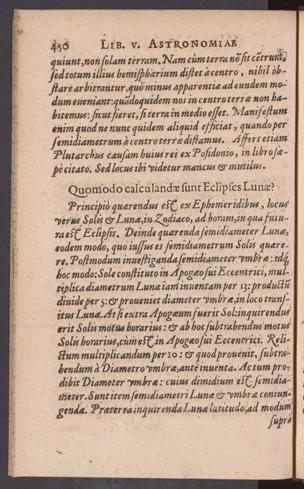 450 LIB. V. ASTRONOMIAE
quiunt, non solam terram. Nam cùm terra nõ sit cẽtrum,
sed totum illius hemisphærium distet à centro, nihil ob-
stare arbitrantur, quò minus apparentiæ ad eundem mo-
dum eveniant: quãdoquidem nos in centro terræ non ha-
bitemus: sicut fieret, si terra in medio esset. Manifestum
enim quod ne nunc quidem aliquid officiat, quando per
semidiametrum à centro terræ distamus. Affert etiam
Plutarchus causam huius rei ex Posidonio, in libro sæ-
pè citato. Sed locus ibi videtur mancus & mutilus.
Quomodo calculandæ sunt Eclipses Lunæ?
Principiò quærendus est ex Ephemeridibus, locus
verus Solis & Lunæ, in Zodiaco, ad horam, in qua futu-
ra est Eclipsis. Deinde quærenda semidiameter Lunæ,
eodem modo, quo iussus es semidiametrum Solis quære-
re. Postmodum investiganda semidiameter vmbræ: idq́
hoc modo: Sole constituto in Apogæo sui Eccentrici, mul-
tiplica diametrum Lunæ iam inuentam per 13: productũ
diuide per 5: & proueniet diameter vmbræ, in loco trans-
itus Lunæ. At si extra Apogæum fuerit Sol: inquirendus
erit Solis motus horarius: & ab hoc subtrahendus motus
Solis horarius, cùm est in Apogæo sui Eccentrici. Reli-
ctum multiplicandum per 10: & quod prouenit, subtra-
hendum à Diametro vmbræ, antè inuenta. Actum pro-
dibit Diameter vmbræ: cuius dimidium est semidia-
meter. Sunt item semidiametri Lunæ & vmbræ coniun-
gendæ. Præterea inquirenda Lunæ latitudo; ad modum
suprà